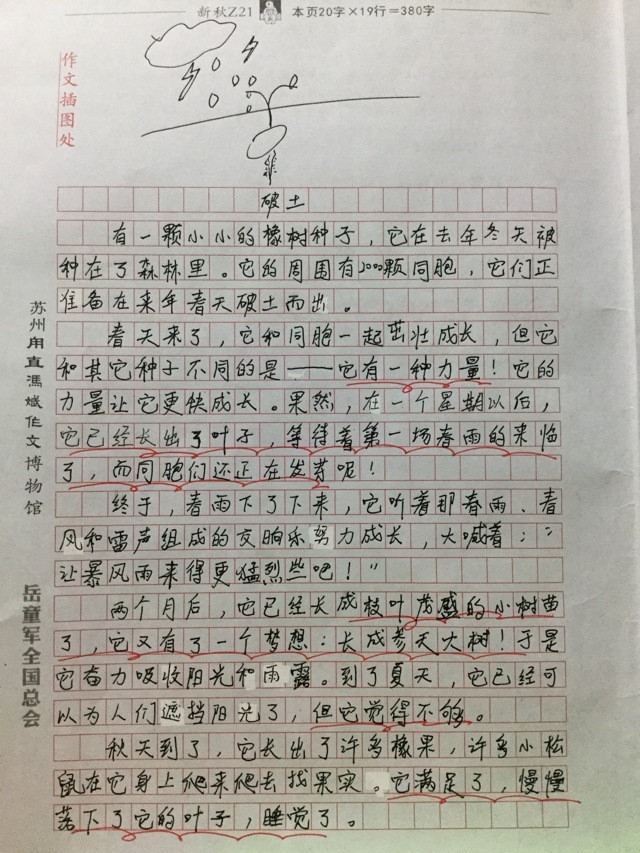 新秋Z21 本页20字×19行=380字
作文插图处
破土
有一颗小小的橡树种子，它在去年冬天被
种在了森林里。它的周围有2000颗同胞，它们正
准备在来年春天破土而出。
春天来了，它和同胞一起茁壮成长，但它
和其它种子不同的是——它有一种力量！它的
力量让它更快成长。果然，在一个星期以后，
它已经长出了叶子，等待着第一场春雨的来临
了，而同胞们还正在发芽呢！
终于，春雨下了下来，它听着那春雨、春
风和雷声组成的交响乐努力成长，大喊着：“
让暴风雨来得更猛烈些吧！”
两个月后，它已经长成枝叶茂盛的小树苗
了，它又有了一个梦想：长成参天大树！于是
它奋力吸收阳光和雨露。到了夏天，它已经可
以为人们遮挡阳光了，但它觉得不够。
秋天到了，它长出了许多橡果，许多小松
鼠在它身上爬来爬去找果实。它满足了，慢慢
落下了它的叶子，睡觉了。
苏州甪直馮斌作文博物馆
岳童军全国总会